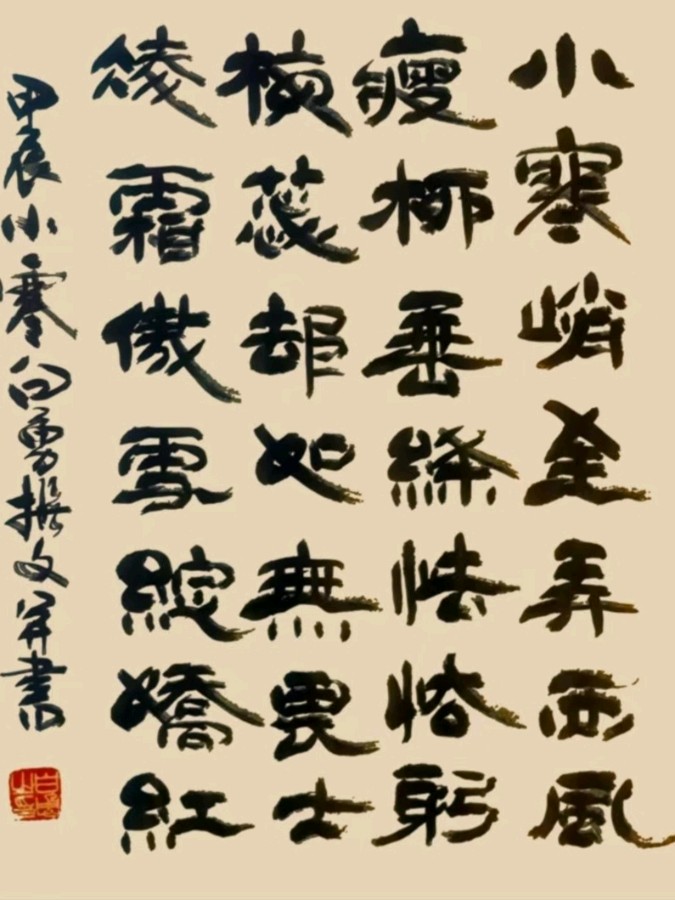 小寒峭至弄西風
瘦柳垂絛怯恪躬
梅蕊却如無畏士
凌霜傲雪綻嬌紅
甲辰小寒白勇撰文并書